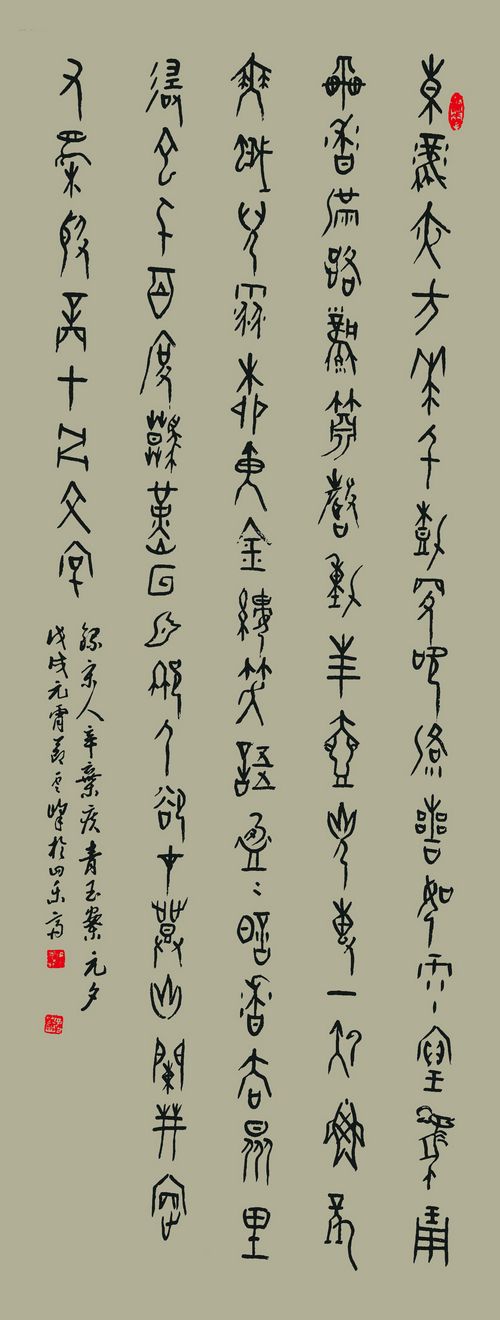 東風夜放花千樹更吹落星如雨寶馬
車香滿路鳳簫聲動玉壺光轉一夜魚龍
舞蛾兒雪柳黃金縷笑語盈〻暗香去眾里
尋他千百度驀然回首那人卻在燈火闌珊處
十五文字
錄宋人辛棄疾青玉案元夕
戊戌元宵峰於四樂齋